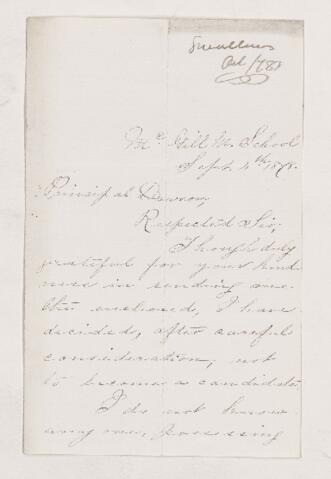 Oct/78
Mc Gill M. School
Sept. 4th 1878.
Principal Dawson,
Respected Sir;
Though duly
grateful for your kind
ness in sending me
the enclosed, I have
decided, after careful
consideration, not
to become a candidate.
I do not know
any one, possessing